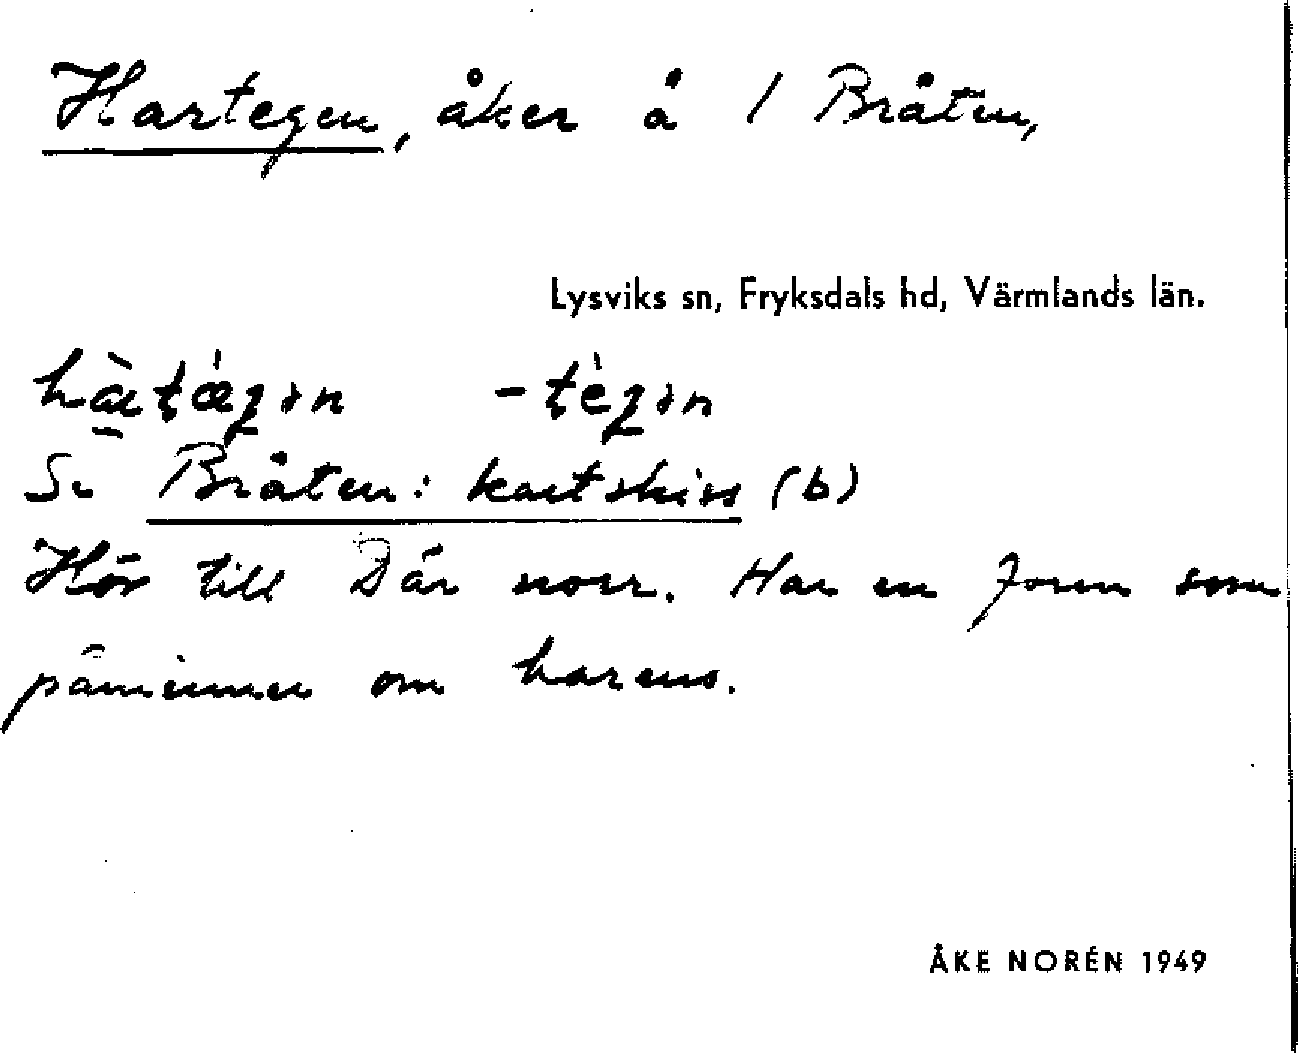 Hartegen, åker å 1 Bråten,
Lysviks sn, Fryksdals hd, Värmlands län.
Se Bråten: kartskiss (b)
Hör till Där norr. Har en form som
påminner om harens.
ÅKE NORÉN 1949